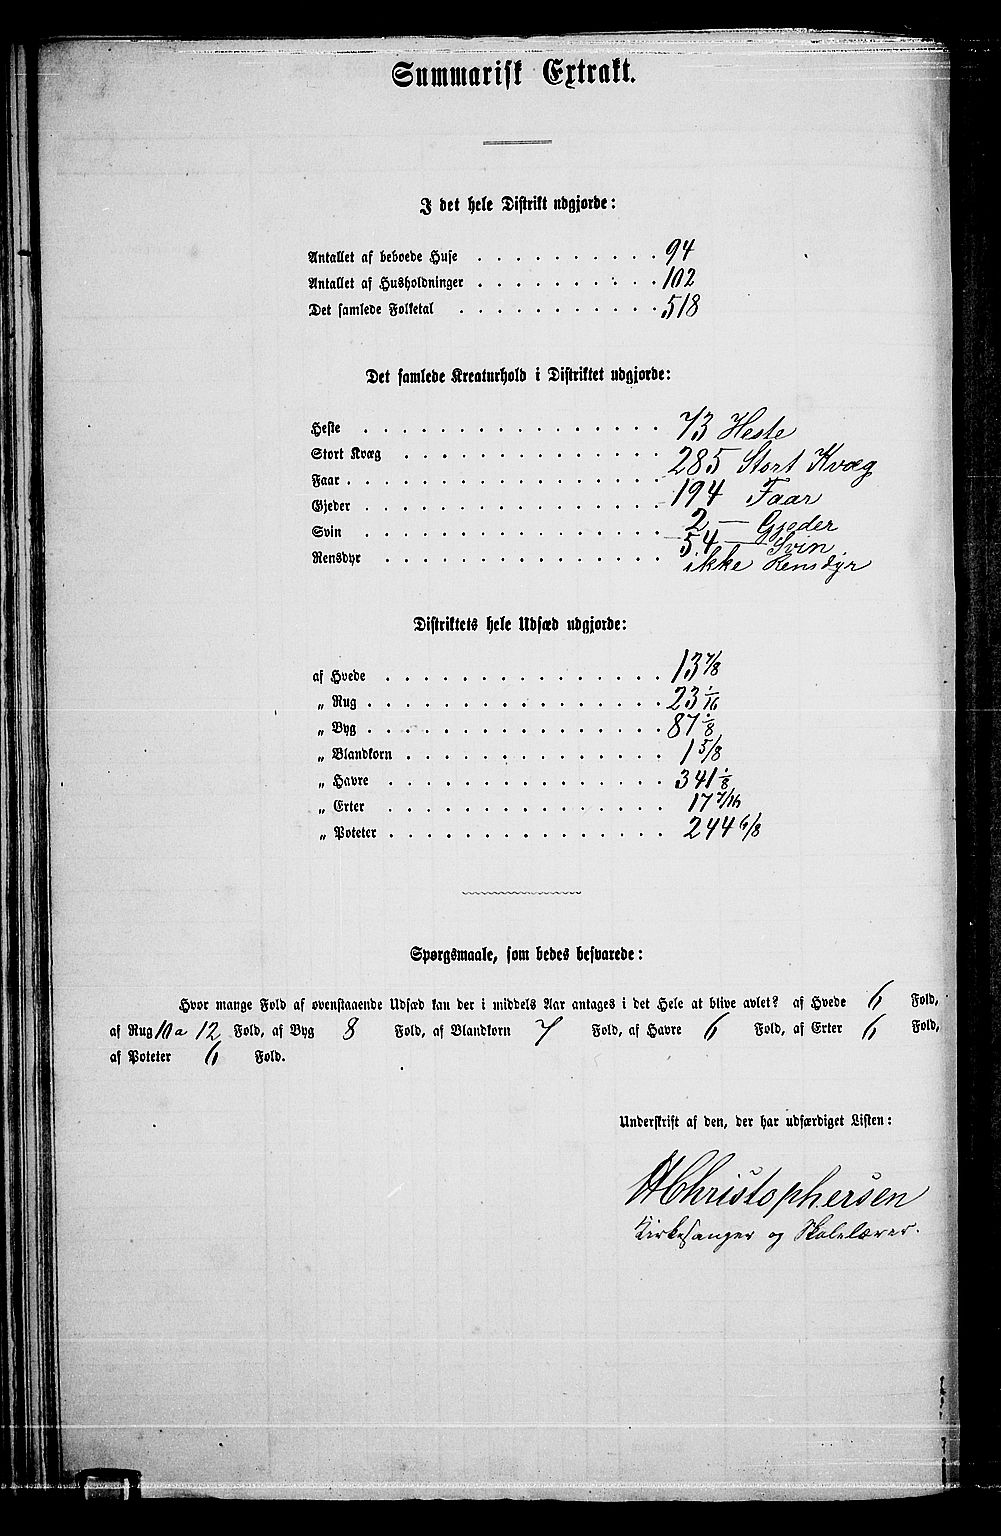 Summarisk Extrakt.
I det hele Distrikt udgjorde:
Antallet af beboede Huse . . . . . . . . . . 94
Antallet af Husholdninger . . . . . . . . . . 102
Det samlede Folketal . . . . . . . . . . . 518
Det samlede Kreaturhold i Distriktet udgjorde:
Heste . . . . . . . . . . . . . . . . 73 Heste
Stort Kvæg . . . . . . . . . . . . . . 285 Stort Kvæg
Faar . . . . . . . . . . . . . . . . . 194 Faar
Gjeder . . . . . . . . . . . . . . . . 2 — Gjeder
Svin . . . . . . . . . . . . . . . . 54 — Svin
Rensdyr . . . . . . . . . . . . . . . ikke Rensdyr
Distriktets hele Udsæd udgjorde:
af Hvede . . . . . . . . . . . . . . . 13 7/8
„ Rug . . . . . . . . . . . . . . . . 23 1/16
„ Byg . . . . . . . . . . . . . . . . 87 1/8
„ Blandkorn . . . . . . . . . . . . . . 1 5/8
„ Havre . . . . . . . . . . . . . . . 341 1/8
„ Erter . . . . . . . . . . . . . . . 17 7/16
„ Poteter . . . . . . . . . . . . . . . 244 6/8
Spørgsmaale, som bedes besvarede:
Hvor mange Fold af ovenstaaende Udsæd kan der i middels Aar antages i det Hele at blive avlet? af Hvede 6 Fold,
af Rug 10 a 12 Fold, af Byg 8 Fold, af Blandkorn 7 Fold, af Havre 6 Fold, af Erter 6 Fold,
af Poteter 6 Fold.
Underskrift af den, der har udfærdiget Listen:
Christophersen
Kirkesanger og Skolelærer.